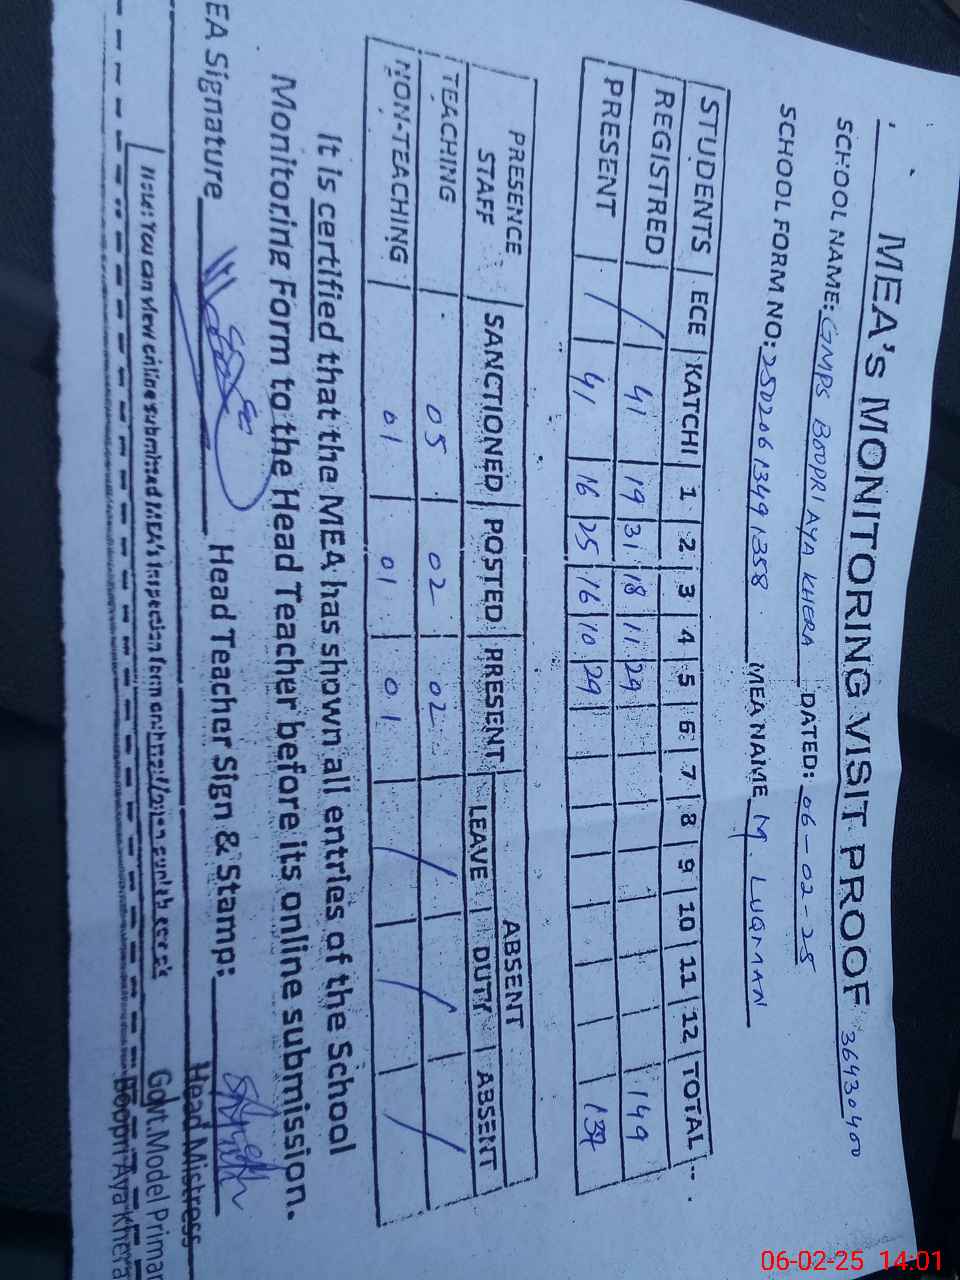 MEA'S MONITORING VISIT PROOF 36430400
SCHOOL NAME: GMPS BOOPRI AYA KHERA DATED: 06-02-25
SCHOOL FORM NO: 25020613491358 MEA NAME M. LUQMAN
STUDENTS ECE KATCHI 1 2 3 4 5 6 7 8 9 10 11 12 TOTAL
REGISTRED / 41 19 31 18 11 29 149
PRESENT / 41 16 25 16 10 29 137
PRESENCE STAFF SANCTIONED POSTED PRESENT ABSENT
LEAVE DUTY ABSENT
TEACHING 05 02 02 / / /
NON-TEACHING 01 01 01
It is certified that the MEA has shown all entries of the School
Monitoring Form to the Head Teacher before its online submission.
EA Signature Head Teacher Sign & Stamp:
Head Mistress
Govt. Model Primar
Boopri Aya Khera
Note: You can view online submitted MEA's Inspection form on
06-02-25 14:01